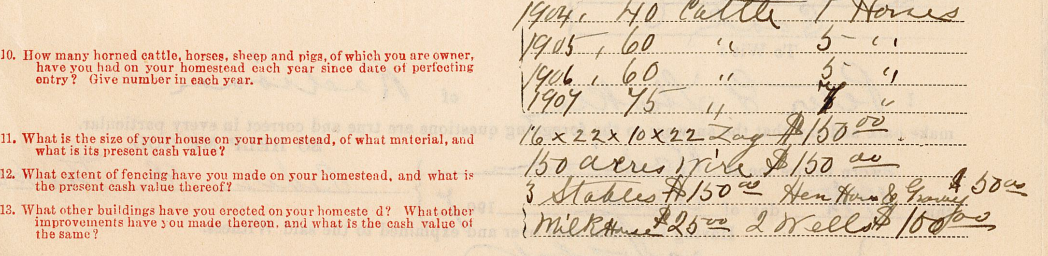 1904, 40 Cattle 1 Horses
1905, 60 " 5 "
10. How many horned cattle, horses, sheep and pigs, of which you are owner,
have you had on your homestead each year since date of perfecting
entry? Give number in each year.
1906, 60 " 5 "
1907 75 "  "
11. What is the size of your house on your homestead, of what material, and
what is its present cash value?
16 x 22 x 10 x 22 Log $150 00
12. What extent of fencing have you made on your homestead, and what is
the present cash value thereof?
150 acres Wire $150 00
3 Stables $150 00 Hen House & $50 00
13. What other buildings have you erected on your homeste d? What other
improvements have you made thereon, and what is the cash value of
the same?
Milk House $25 00 2 Wells $100 00